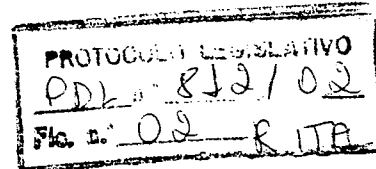 PROTOCOLO LEGISLATIVO
PDL n.º 812/02
Fls. n.º 02 R. ITA